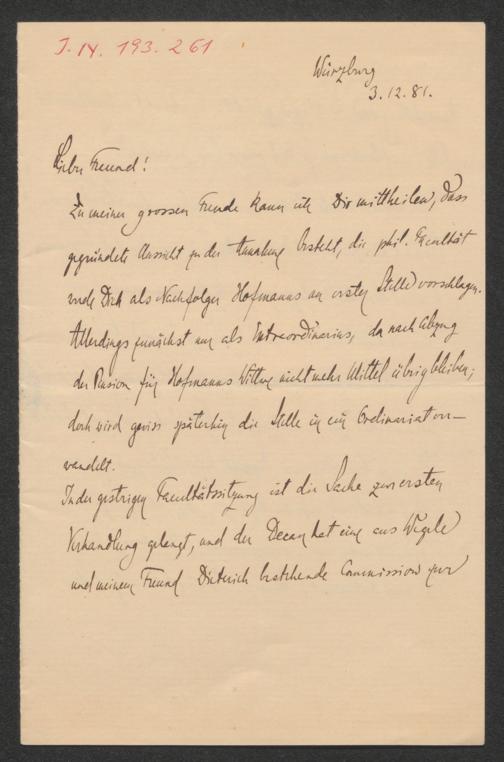 J. N. 193.261
Würzburg
3.12.81.
Lieber Freund!
Zu meiner grossen Freude kann ich Dir mittheilen, dass
gegründete Aussicht zu der Annahme besteht, die phil. Facultät
werde Dich als Nachfolger Hofmanns an erster Stelle vorschlagen.
Allerdings zunächst nur als Extraordinarius, da nach Abzug
der Pension für Hofmanns Wittwe nicht mehr Mittel übrig bleiben;
doch wird gewiss späterhin die Stelle in ein Ordinariat ver-
wandelt.
In der gestrigen Facultätssitzung ist die Sache zur ersten
Verhandlung gelangt, und der Decan hat eine aus Wegele
und meinem Freund Dieterich bestehende Commission zur